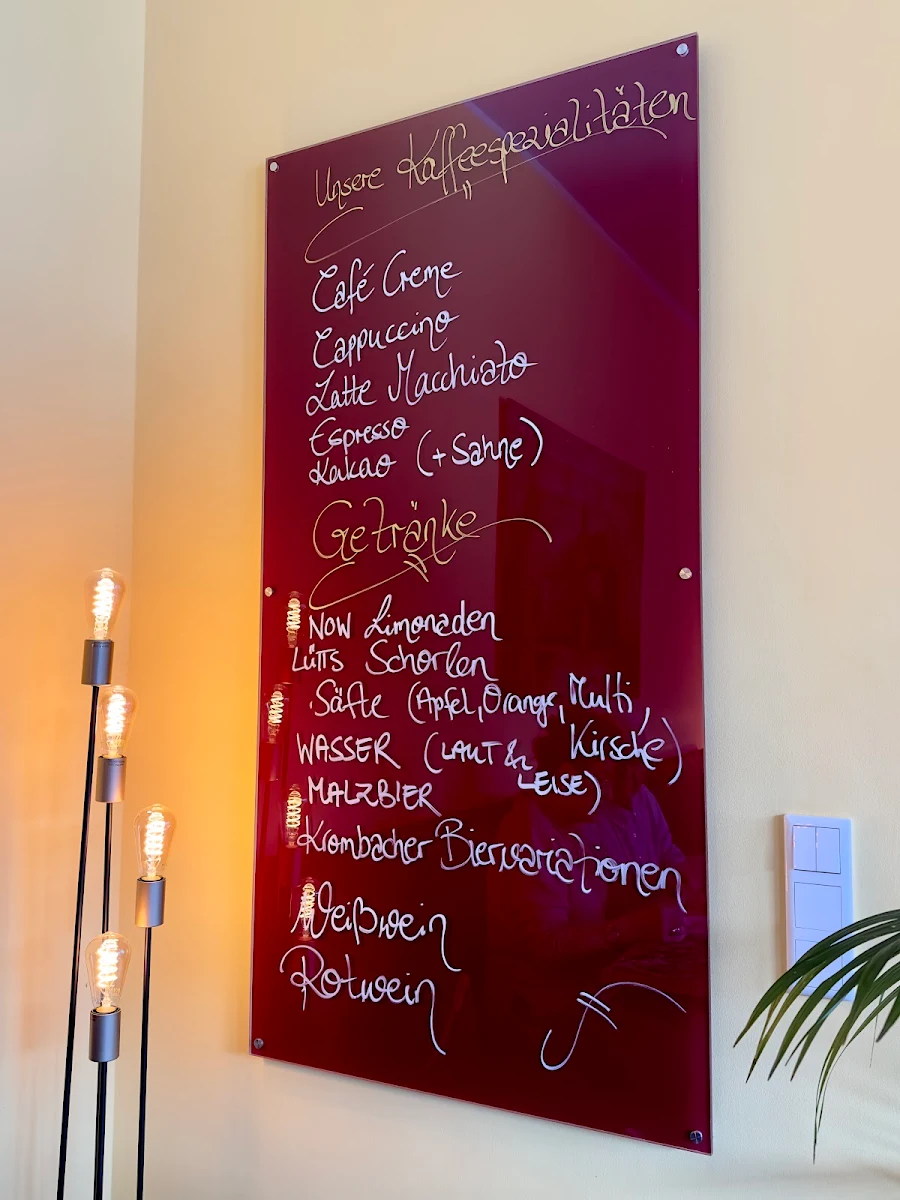 Unsere Kaffeespezialitäten
Café Creme
Cappuccino
Latte Macchiato
Espresso
Kakao (+ Sahne)
Getränke
NOW Limonaden
LÜTTS Schorlen
Säfte (Apfel, Orange, Multi,
Kirsche)
WASSER (LAUT &
LEISE)
MALZBIER
Krombacher Biervariationen
Weißwein
Rotwein